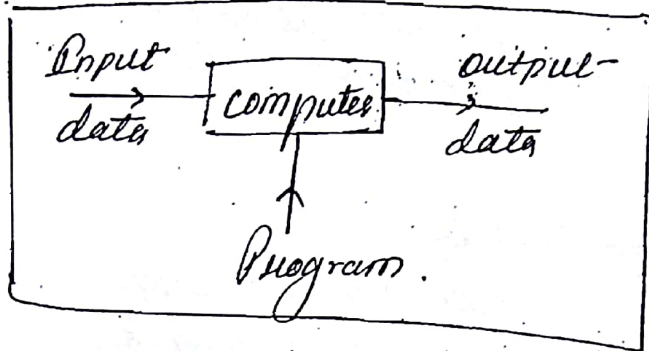 Input
data
computer
output
data
Program.